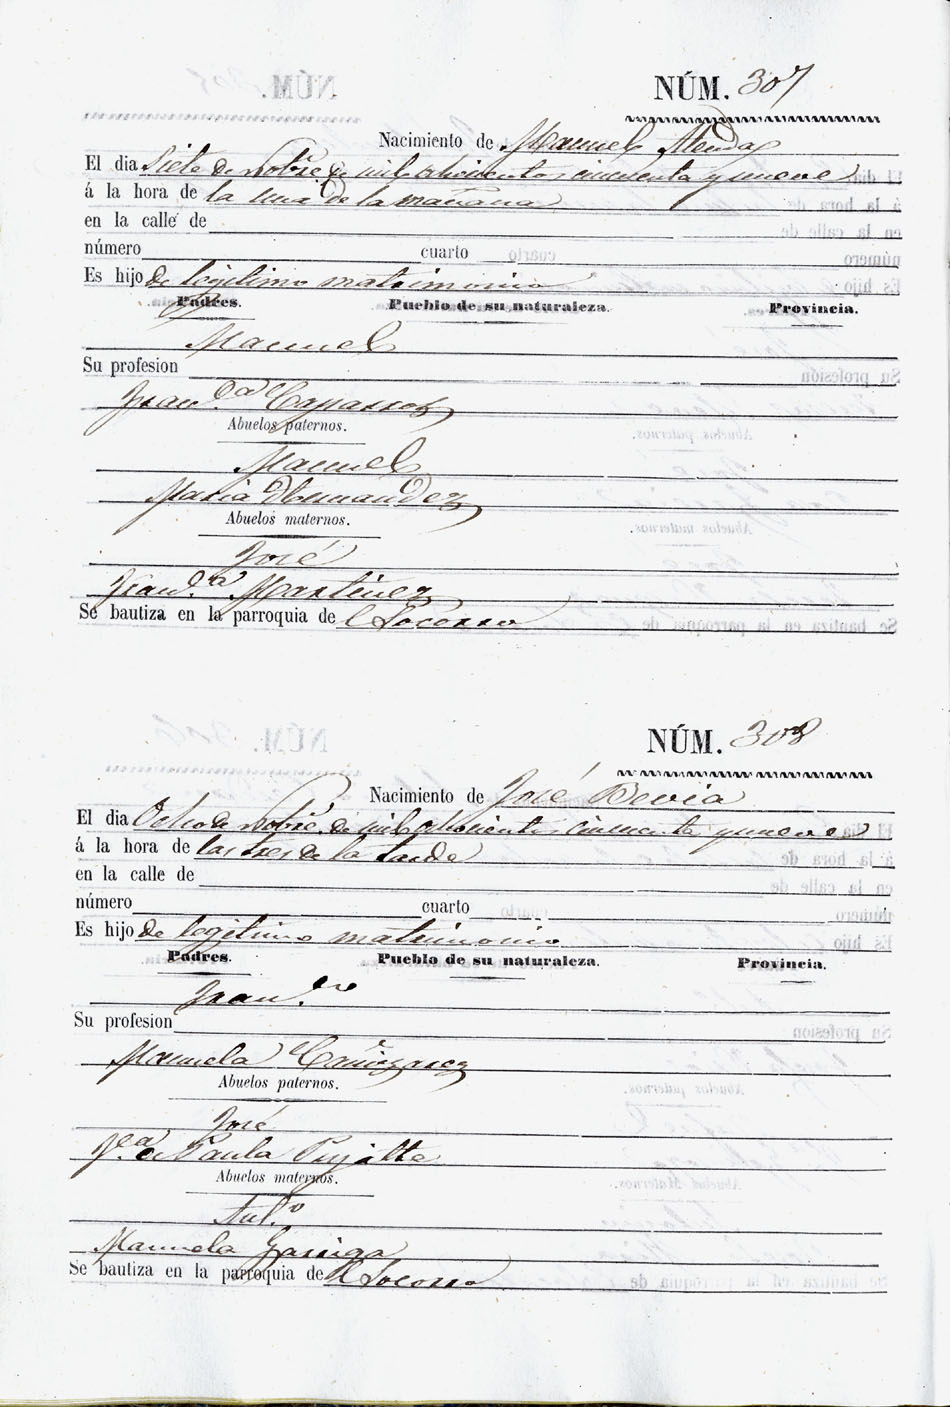 NÚM. 307
Nacimiento de Manuel
El dia siete de Nobre. de mil ochocientos cincuenta y nueve
á la hora de la una de la mañana
en la calle de
número cuarto
Es hijo de legitimo matrimonio
Padres. Pueblo de su naturaleza. Provincia.
Manuel
Su profesion
Fran.ca Caparros
Abuelos paternos.
Manuel
Maria Hernandez
Abuelos maternos.
José
Fran.ca Martinez
Se bautiza en la parroquia de l Socorro
NÚM. 308
Nacimiento de José Bevia
El dia Ocho de Nobre. de mil ochocientos cincuenta y nueve
á la hora de las tres de la tarde
en la calle de
número cuarto
Es hijo de legitimo matrimonio
Padres. Pueblo de su naturaleza. Provincia.
Fran.co
Su profesion
Manuela Cañizares
Abuelos paternos.
José
F.ca de Paula
Abuelos maternos.
Ant.o
Manuela Garriga
Se bautiza en la parroquia de l Socorro